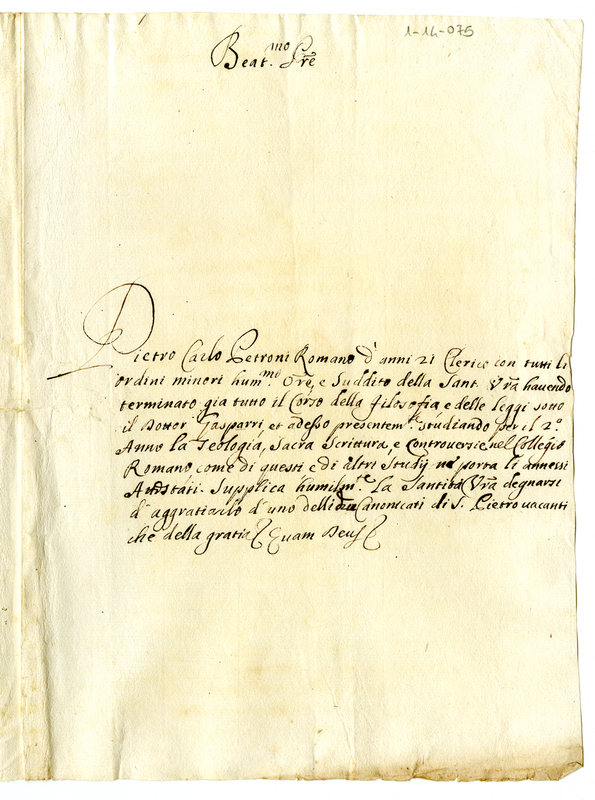 1-14-075
Beat.mo Pre
Pietro Carlo Petroni Romano d'anni 21 Clerico con tutti li
ordini minori hum.mo Ore, e Suddito della Sant. Vra havendo
terminato già tutto il Corso della filosofia, e delle leggi sotto
il Dottor Gasparri, et adesso presentem.e studiando per il 2.o
Anno la Teologia, Sacra Scrittura, e Controversie nel Collegio
Romano come di questi e di altri Studij ne porta li annessi
Attestati. Supplica humilm.te La Santità Vra degnarsi
d'aggratiarlo d'uno delli due Canonicati di S. Pietro vacanti
che della gratia Quam Deus